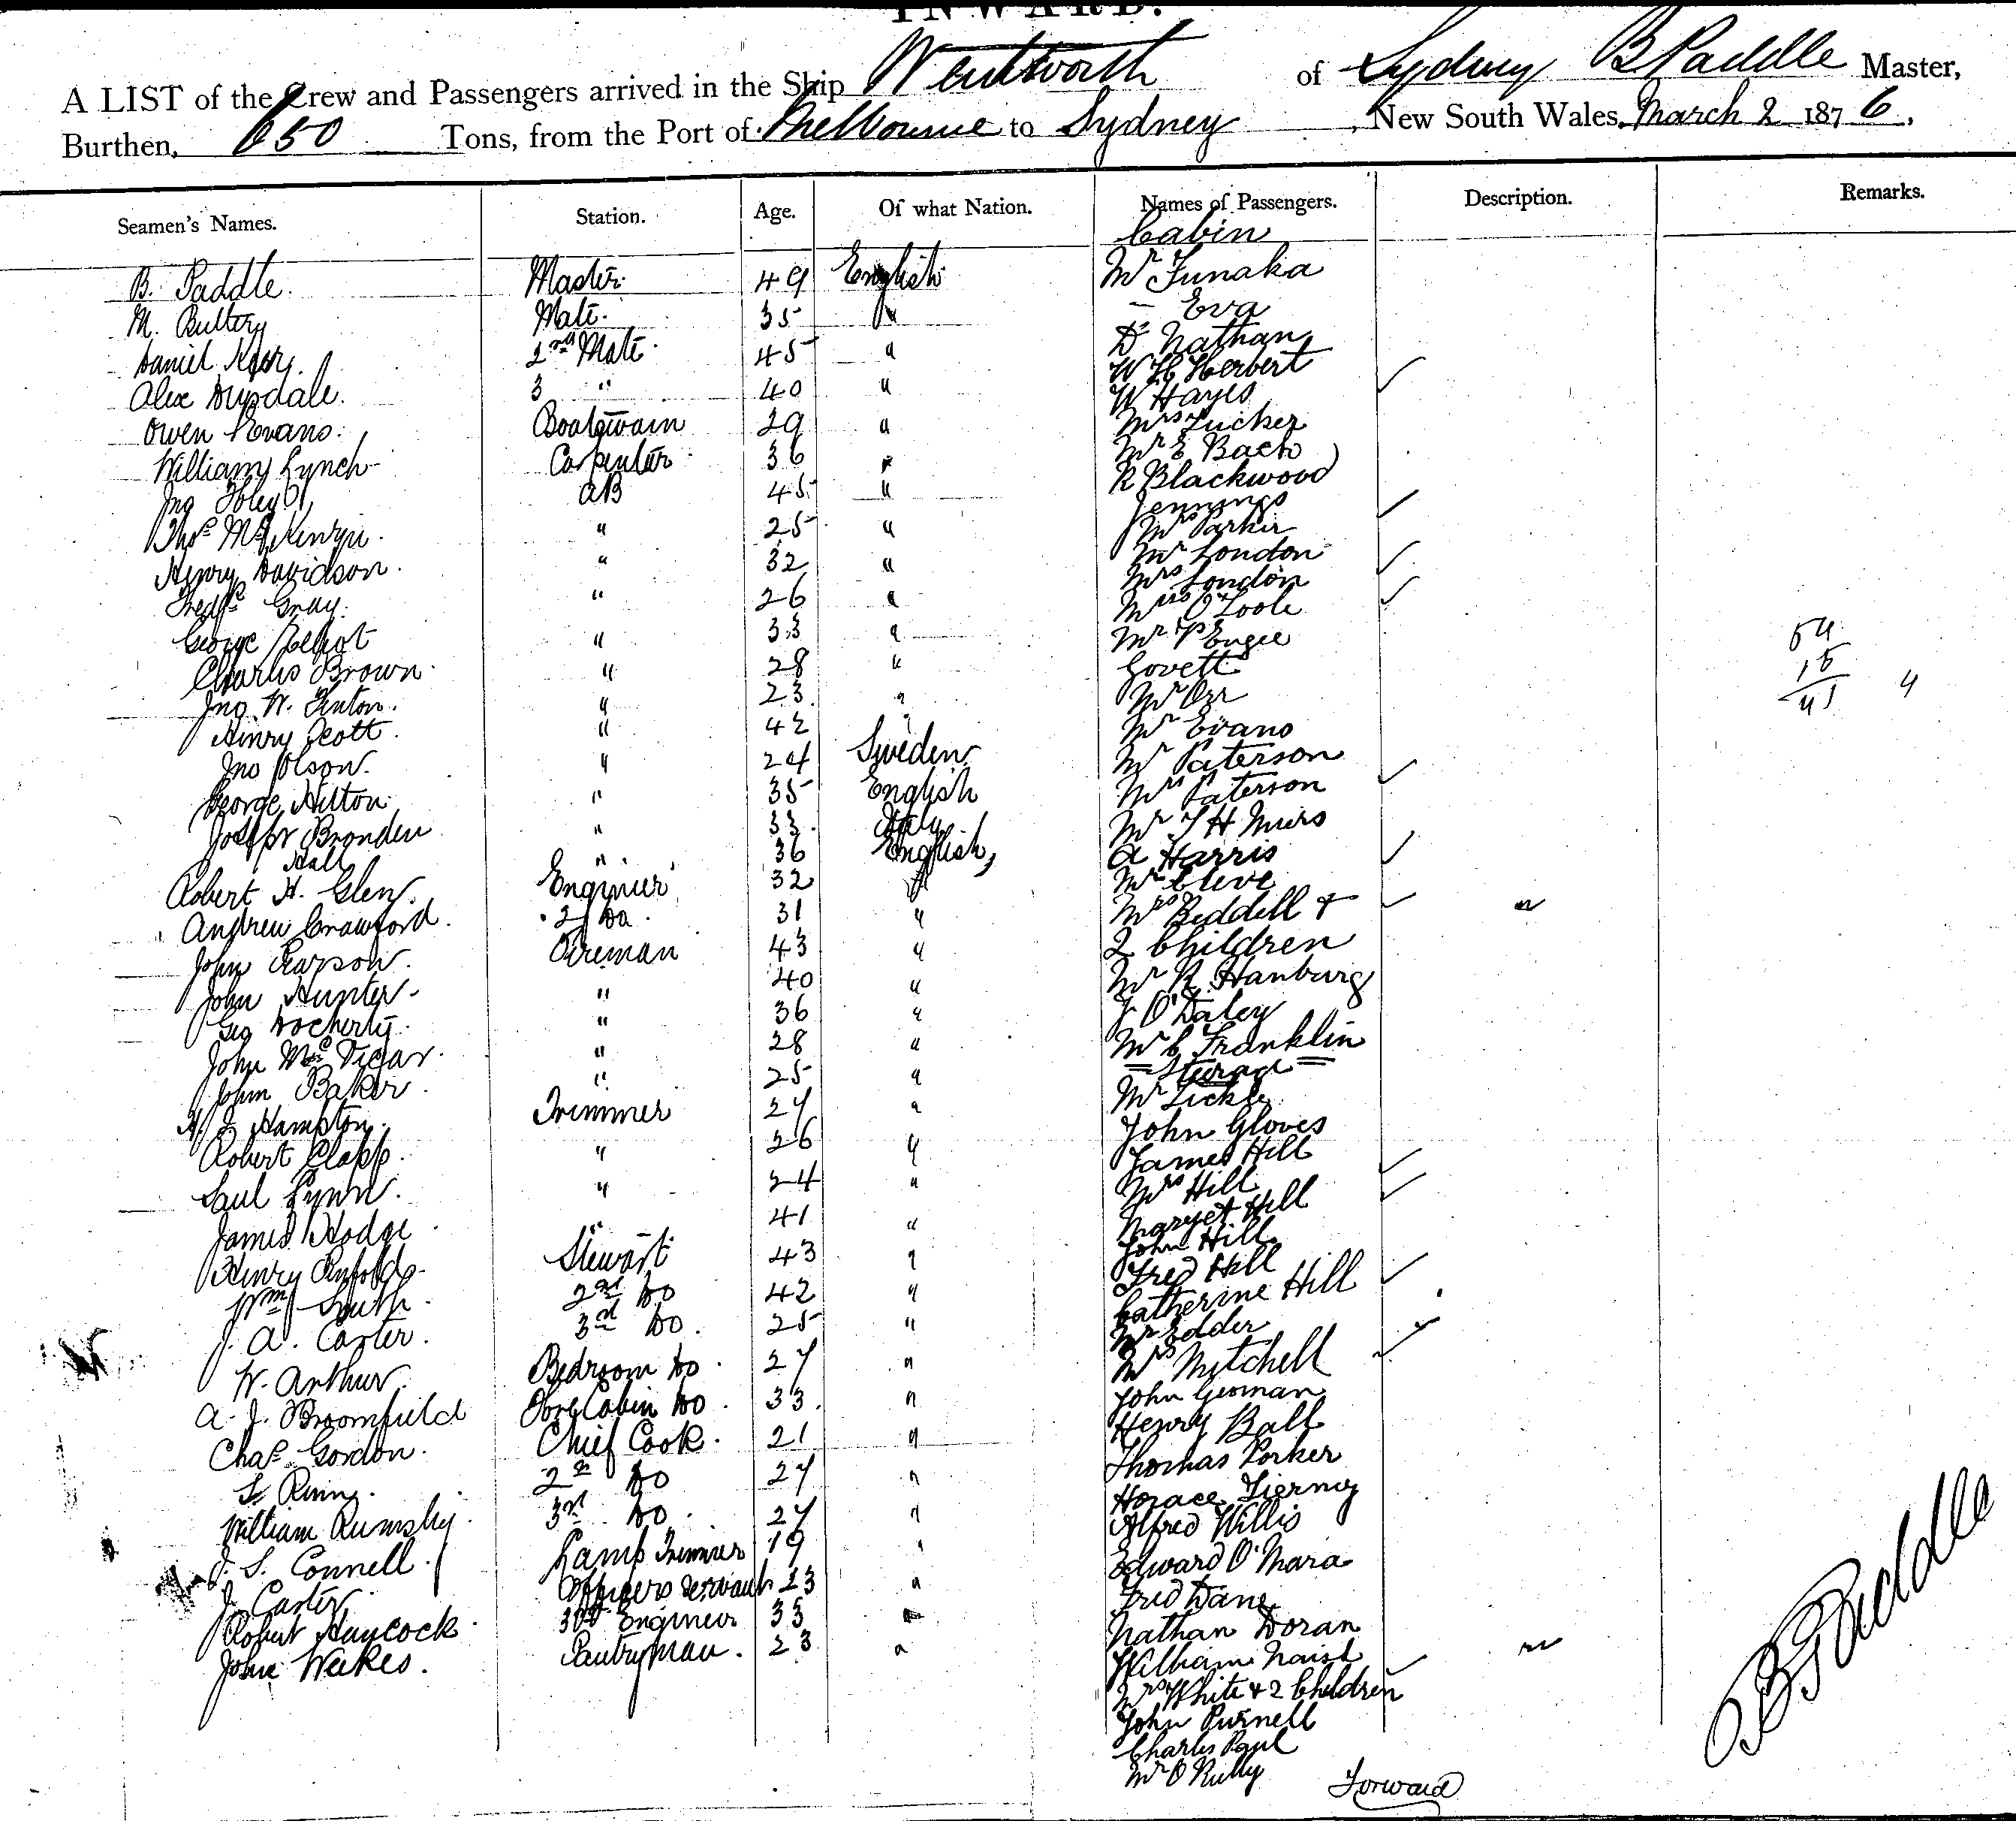 INWARD.
A LIST of the Crew and Passengers arrived in the Ship Wentworth of Sydney B Paddle Master,
Burthen, 650 Tons, from the Port of Melbourne to Sydney, New South Wales, March 2 1876,
Seamen's Names. Station. Age. Of what Nation. Names of Passengers. Description. Remarks.
Cabin
B. Paddle Master 49 English Mr Funaka
M. Buttery Mate 35 " – Eva
Daniel 2nd Mate 45 " Dr Nathan
Alex Drysdale 3 " 40 " W H Herbert
Owen Evans Boatswain 29 " W Hayes
Mrs Tucker
William Lynch Carpenter 36 " Mr E Bach
Jno Foley AB 45 " R Blackwood
Jennings
Thos " 25 " Mrs Parker
Henry Davidson " 32 " Mr London
Mrs London
Fredk Gray " 26 " Mrs O'Toole
George " 33 " Mr P Engee
Charles Brown " 28 " Govett
Jno W. Finton " 23 " Mr Orr
Henry Scott " 42 " Mr Evans
Jno Olson " 24 Sweden Mr Paterson
George Hilton " 35 English Mrs Paterson
Joseph Bronden " 33 Italy Mr T H Muirs
Hall " 36 English A Harris
Robert H. Glen Engineer 32 " Mr Clive
Andrew Crawford 2 Do 31 " Mrs Beddell &
John Pearson Fireman 43 " 2 Children
John Hunter " 40 " Mr R Hanbury
Geo Docherty " 36 " J O'Daley
John McVicar " 28 " Mr C Franklin
John Baker " 25 " = Steerage =
Mr Tickle
H. J. Hampton Trimmer 27 " John Gloves
Robert Clapp " 26 " James Hill
Paul Lynn " 24 " Mrs Hill
Margret Hill
James Hodge " 41 " John Hill
Henry Stewart 43 " Fred Hill
Wm South 2nd Do 42 " Catherine Hill
J. A. Carter 3rd Do 25 " Mr Edder
W. Arthur Bedroom Do 27 " Mrs Mitchell
A. J. Broomfield Fore Cabin Do 33 " John German
Chas Gordon Chief Cook 21 " Henry Ball
Thomas Porker
2nd Do 27 " Horace Tierney
William Rumsby 3rd Do 27 " Alfred Willis
J. S. Connell Lamp Trimmer 19 " Edward O'Mara
J. Carter Officers Servant 23 " Fred Dane
Robert Haycock 3rd Engineer 33 " Nathan Doran
John Weekes Pantryman 23 " William Naish
Mrs White & 2 Children
John Purnell
Charles Paul
Mr O Reilly
Forward
B Paddle